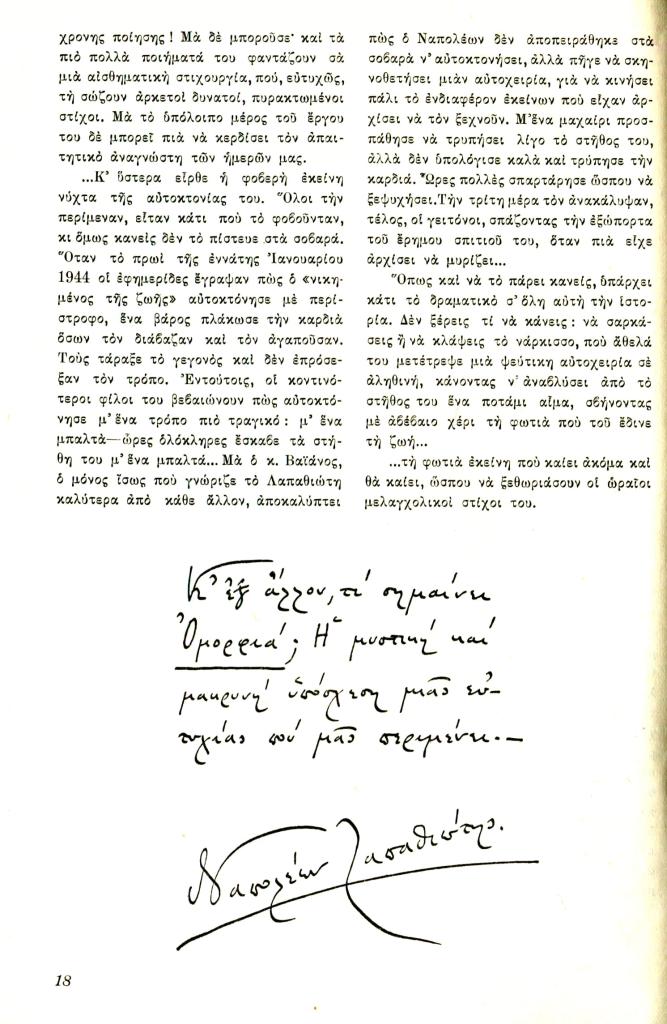 χρονης ποίησης! Μὰ δὲ μποροῦσε· καὶ τὰ
πιὸ πολλὰ ποιήματά του φαντάζουν σὰ
μιὰ αἰσθηματικὴ στιχουργία, πού, εὐτυχῶς,
τὴ σώζουν ἀρκετοὶ δυνατοί, πυρακτωμένοι
στίχοι. Μὰ τὸ ὑπόλοιπο μέρος τοῦ ἔργου
του δὲ μπορεῖ πιὰ νὰ κερδίσει τὸν ἀπαι-
τητικὸ ἀναγνώστη τῶν ἡμερῶν μας.
...Κ’ ὕστερα εἶρθε ἡ φοβερὴ ἐκείνη
νύχτα τῆς αὐτοκτονίας του. Ὅλοι τὴν
περίμεναν, εἶταν κάτι ποὺ τὸ φοβοῦνταν,
κι ὅμως κανεὶς δὲν τὸ πίστευε στὰ σοβαρά.
Ὅταν τὸ πρωὶ τῆς ἐννάτης Ἰανουαρίου
1944 οἱ ἐφημερίδες ἔγραψαν πὼς ὁ «νικη-
μένος τῆς ζωῆς» αὐτοκτόνησε μὲ περί-
στροφο, ἕνα βάρος πλάκωσε τὴν καρδιὰ
ὅσων τὸν διάβαζαν καὶ τὸν ἀγαποῦσαν.
Τοὺς τάραξε τὸ γεγονὸς καὶ δὲν ἐπρόσε-
ξαν τὸν τρόπο. Ἐντούτοις, οἱ κοντινό-
τεροι φίλοι του βεβαιώνουν πὼς αὐτοκτό-
νησε μ’ ἕνα τρόπο πιὸ τραγικό: μ’ ἕνα
μπαλτὰ—ὧρες ὁλόκληρες ἔσκαβε τὰ στή-
θη του μ’ ἕνα μπαλτά... Μὰ ὁ κ. Βαϊάνος,
ὁ μόνος ἴσως ποὺ γνώριζε τὸ Λαπαθιώτη
καλύτερα ἀπὸ κάθε ἄλλον, ἀποκαλύπτει
πὼς ὁ Ναπολέων δὲν ἀποπειράθηκε στὰ
σοβαρὰ ν’ αὐτοκτονήσει, ἀλλὰ πῆγε νὰ σκη-
νοθετήσει μιὰν αὐτοχειρία, γιὰ νὰ κινήσει
πάλι τὸ ἐνδιαφέρον ἐκείνων ποὺ εἶχαν ἀρ-
χίσει νὰ τὸν ξεχνοῦν. Μ’ ἕνα μαχαίρι προσ-
πάθησε νὰ τρυπήσει λίγο τὸ στῆθος του,
ἀλλὰ δὲν ὑπολόγισε καλὰ καὶ τρύπησε τὴν
καρδιά. Ὧρες πολλὲς σπαρτάρησε ὥσπου νὰ
ξεψυχήσει. Τὴν τρίτη μέρα τὸν ἀνακάλυψαν,
τέλος, οἱ γειτόνοι, σπάζοντας τὴν ἐξώπορτα
τοῦ ἔρημου σπιτιοῦ του, ὅταν πιὰ εἶχε
ἀρχίσει νὰ μυρίζει...
Ὅπως καὶ νὰ τὸ πάρει κανείς, ὑπάρχει
κάτι τὸ δραματικὸ σ’ ὅλη αὐτὴ τὴν ἱστο-
ρία. Δὲν ξέρεις τί νὰ κάνεις: νὰ σαρκά-
σεις ἢ νὰ κλάψεις τὸ νάρκισσο, ποὺ ἄθελά
του μετέτρεψε μιὰ ψεύτικη αὐτοχειρία σὲ
ἀληθινή, κάνοντας ν’ ἀναβλύσει ἀπὸ τὸ
στῆθος του ἕνα ποτάμι αἷμα, σβήνοντας
μὲ ἀβέβαιο χέρι τὴ φωτιὰ ποὺ τοῦ ἔδινε
τὴ ζωή...
...τὴ φωτιὰ ἐκείνη ποὺ καίει ἀκόμα καὶ
θὰ καίει, ὥσπου νὰ ξεθωριάσουν οἱ ὡραῖοι
μελαγχολικοὶ στίχοι του.
Κ’ ἐξ ἄλλου, τί σημαίνει
Ὀμορφιά; Ἡ μυστικὴ καὶ
μακρυνὴ ὑπόσχεση μιᾶς εὐ-
τυχίας ποὺ μᾶς περιμένει.—
Ναπολέων Λαπαθιώτης.
18